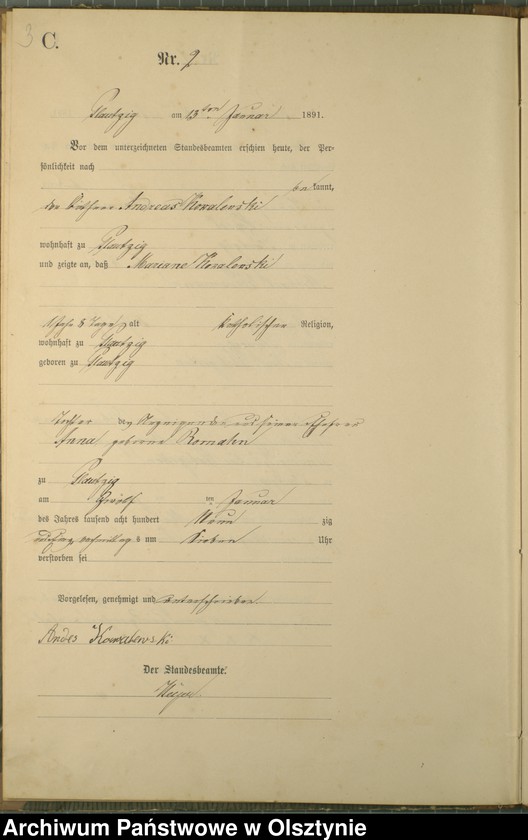 3 C.
Nr. 2
Plautzig am 13ten Januar 1891.
Vor dem unterzeichneten Standesbeamten erschien heute, der Per-
sönlichkeit nach
bekannt,
der Andreas Kowalewski
wohnhaft zu Plautzig
und zeigte an, daß Mariane Kowalewski
8 Tage alt katholischer Religion,
wohnhaft zu Plautzig
geboren zu Plautzig
Tochter des und seiner Ehefrau
Anna geborene Romahn
zu Plautzig
am Zwölf ten Januar
des Jahres tausend acht hundert Neun zig
und Vormittags um Sieben Uhr
verstorben sei
Vorgelesen, genehmigt und unterschrieben
Andres Kowalewski
Der Standesbeamte.
Archiwum Państwowe w Olsztynie